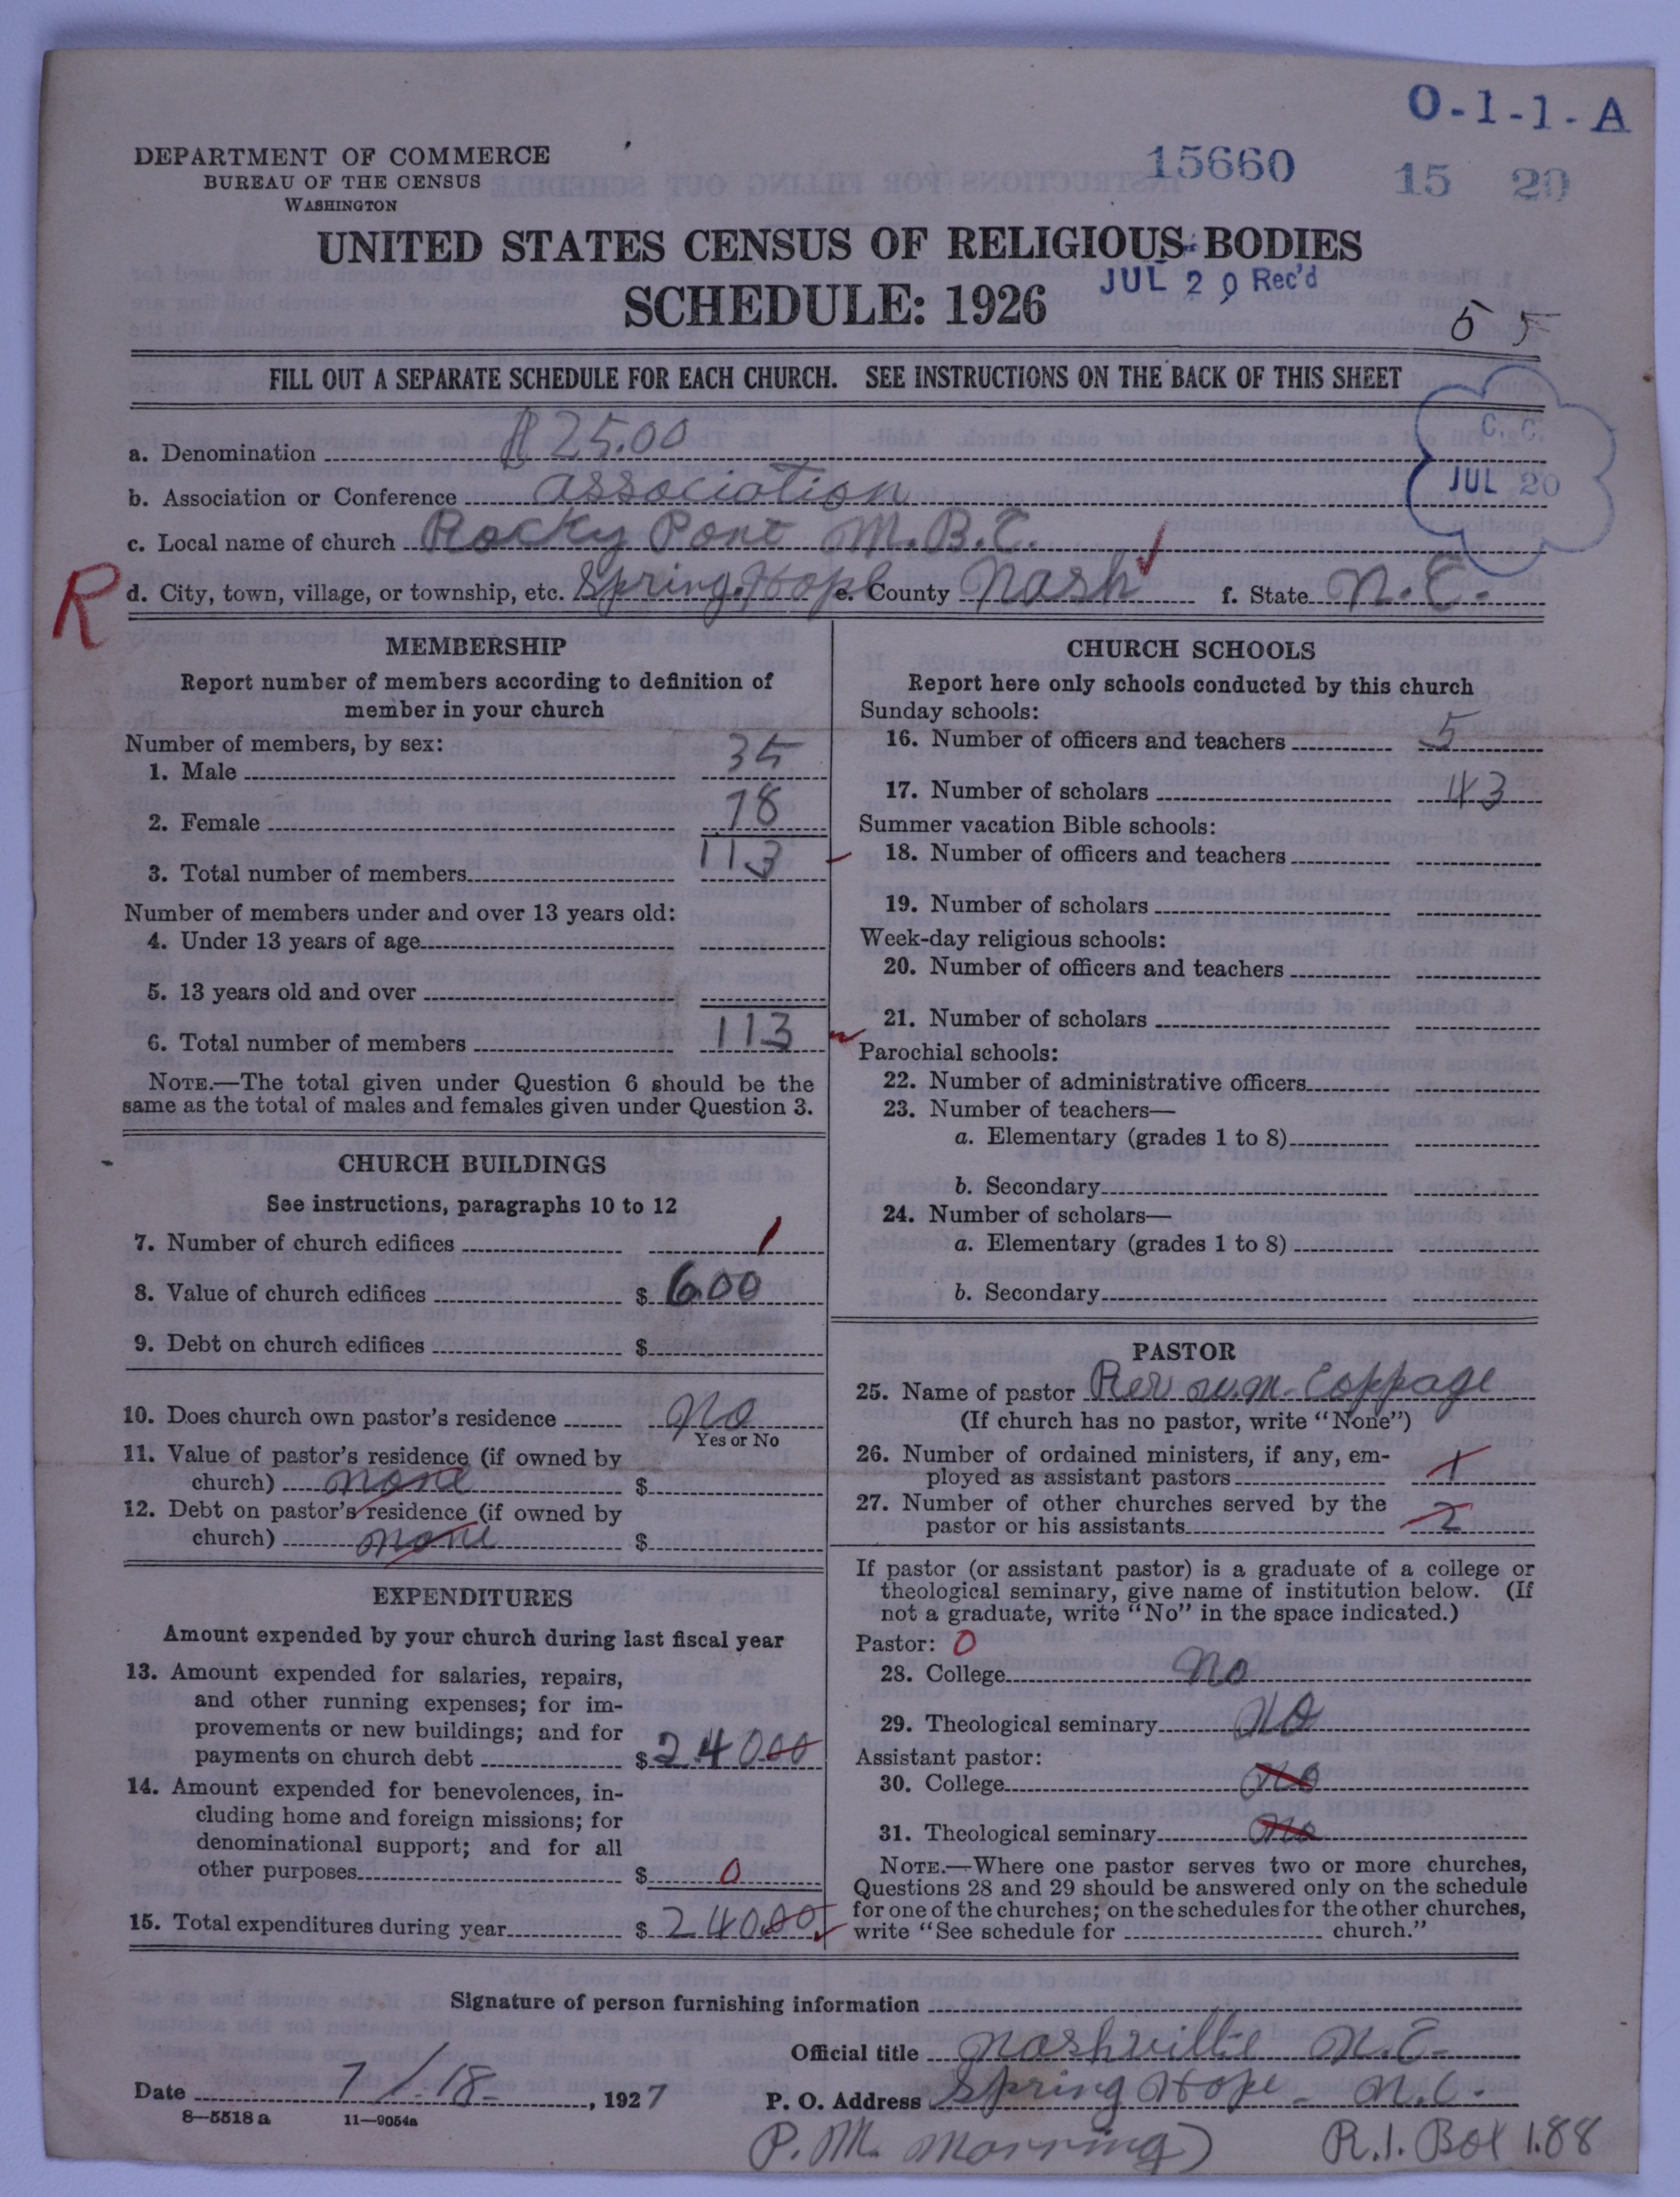 O-1-1-A
DEPARTMENT OF COMMERCE
BUREAU OF THE CENSUS
WASHINGTON
15660
15 20
UNITED STATES CENSUS OF RELIGIOUS BODIES
SCHEDULE: 1926
JUL 20 Rec'd
5 5
FILL OUT A SEPARATE SCHEDULE FOR EACH CHURCH. SEE INSTRUCTIONS ON THE BACK OF THIS SHEET
C. C.
JUL 20
a. Denomination $25.00
b. Association or Conference association
c. Local name of church Rocky Pont M.B.C.
R
d. City, town, village, or township, etc. Spring Hope e. County Nash f. State N.C.
MEMBERSHIP
Report number of members according to definition of
member in your church
Number of members, by sex:
1. Male 35
2. Female 78
3. Total number of members 113
Number of members under and over 13 years old:
4. Under 13 years of age
5. 13 years old and over
6. Total number of members 113
NOTE.—The total given under Question 6 should be the
same as the total of males and females given under Question 3.
CHURCH BUILDINGS
See instructions, paragraphs 10 to 12
7. Number of church edifices 1
8. Value of church edifices $ 600
9. Debt on church edifices $
10. Does church own pastor's residence No
Yes or No
11. Value of pastor's residence (if owned by
church) none $
12. Debt on pastor's residence (if owned by
church) none $
EXPENDITURES
Amount expended by your church during last fiscal year
13. Amount expended for salaries, repairs,
and other running expenses; for im-
provements or new buildings; and for
payments on church debt $ 240.00
14. Amount expended for benevolences, in-
cluding home and foreign missions; for
denominational support; and for all
other purposes $ 0
15. Total expenditures during year $ 240.00
CHURCH SCHOOLS
Report here only schools conducted by this church
Sunday schools:
16. Number of officers and teachers 5
17. Number of scholars 43
Summer vacation Bible schools:
18. Number of officers and teachers
19. Number of scholars
Week-day religious schools:
20. Number of officers and teachers
21. Number of scholars
Parochial schools:
22. Number of administrative officers
23. Number of teachers—
a. Elementary (grades 1 to 8)
b. Secondary
24. Number of scholars—
a. Elementary (grades 1 to 8)
b. Secondary
PASTOR
25. Name of pastor Rev W.M. Coppage
(If church has no pastor, write "None")
26. Number of ordained ministers, if any, em-
ployed as assistant pastors 1
27. Number of other churches served by the
pastor or his assistants 2
If pastor (or assistant pastor) is a graduate of a college or
theological seminary, give name of institution below. (If
not a graduate, write "No" in the space indicated.)
Pastor: 0
28. College No
29. Theological seminary No
Assistant pastor:
30. College No
31. Theological seminary No
NOTE.—Where one pastor serves two or more churches,
Questions 28 and 29 should be answered only on the schedule
for one of the churches; on the schedules for the other churches,
write "See schedule for church."
Signature of person furnishing information
Official title Nashville N.C.
Date 7/18 , 1927 P. O. Address Spring Hope N.C.
8—5518 a 11—9054a
P. M. Morning R.1. Box 1.88